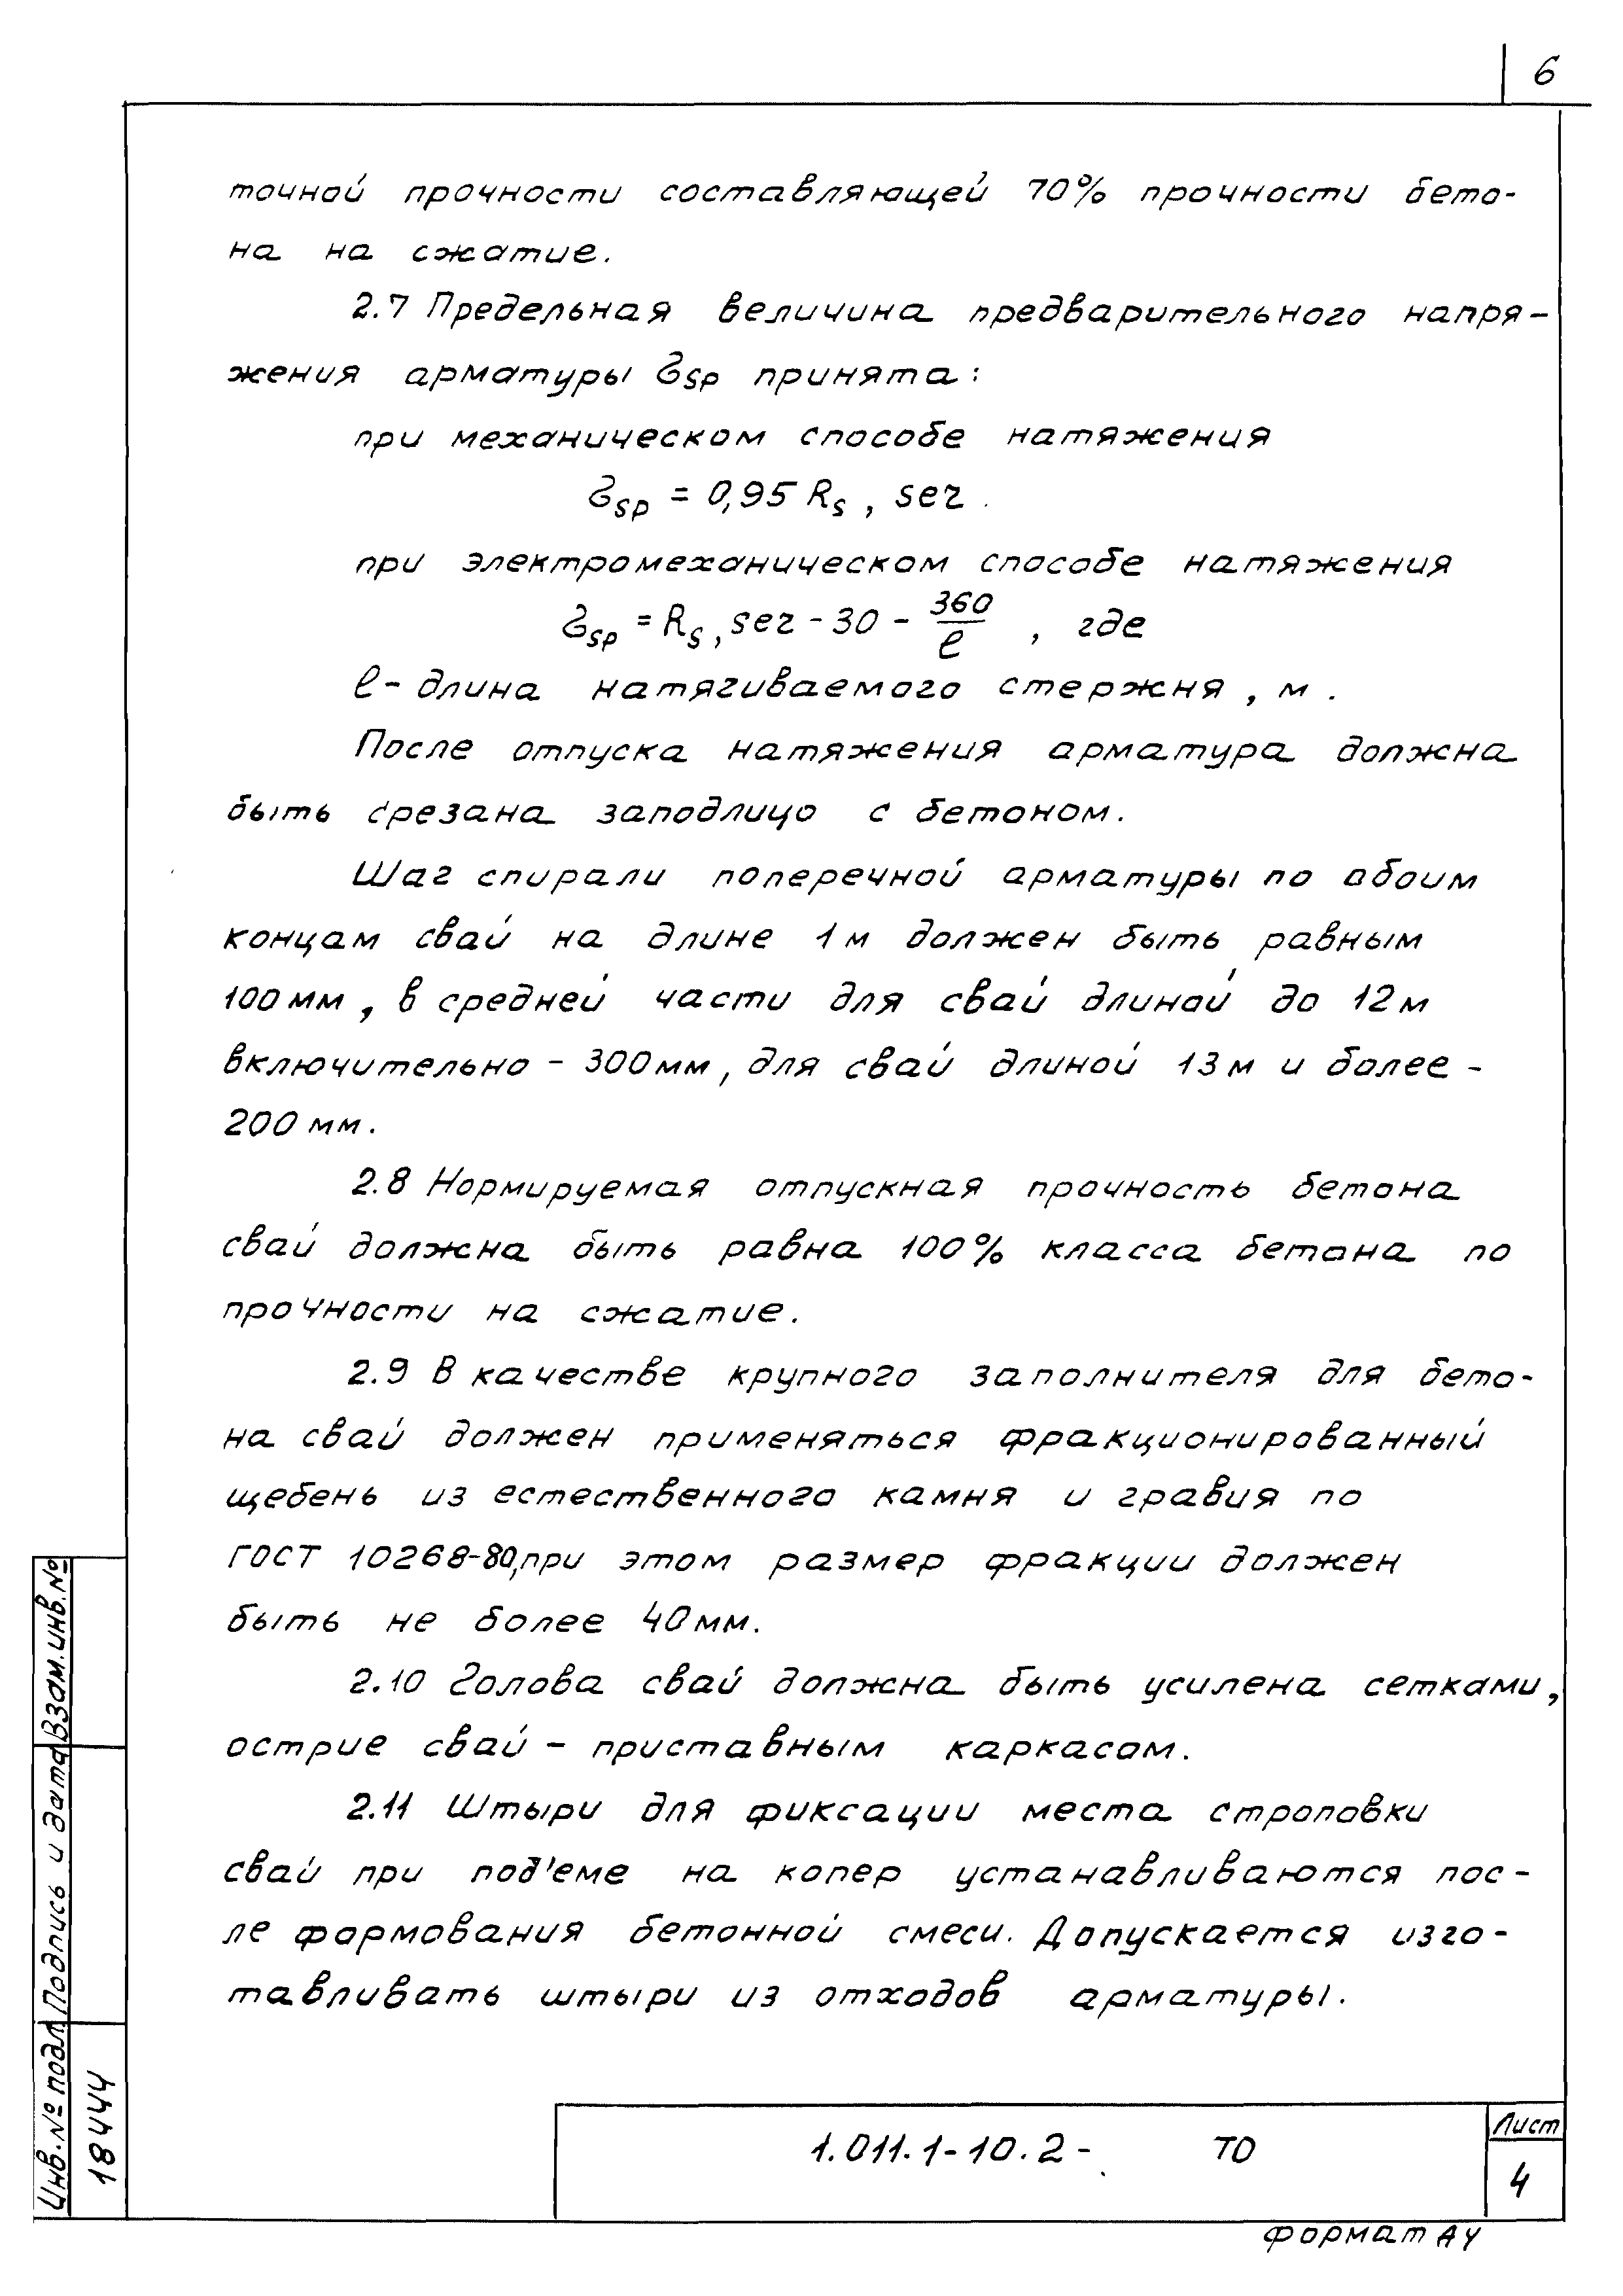 6
точной прочности составляющей 70% прочности бето-
на на сжатие.
2.7 Предельная величина предварительного напря-
жения арматуры σsp принята:
при механическом способе натяжения
σsp = 0,95 Rs, ser.
при электромеханическом способе натяжения
σsp = Rs, ser - 30 - 360/ℓ , где
ℓ - длина натягиваемого стержня, м.
После отпуска натяжения арматура должна
быть срезана заподлицо с бетоном.
Шаг спирали поперечной арматуры по обоим
концам свай на длине 1м должен быть равным
100мм, в средней части для свай длиной до 12м
включительно - 300мм, для свай длиной 13м и более -
200мм.
2.8 Нормируемая отпускная прочность бетона
свай должна быть равна 100% класса бетона по
прочности на сжатие.
2.9 В качестве крупного заполнителя для бето-
на свай должен применяться фракционированный
щебень из естественного камня и гравия по
ГОСТ 10268-80, при этом размер фракции должен
быть не более 40мм.
2.10 Голова свай должна быть усилена сетками,
острие свай - приставным каркасом.
2.11 Штыри для фиксации места строповки
свай при под'еме на копер устанавливаются пос-
ле формования бетонной смеси. Допускается изго-
тавливать штыри из отходов арматуры.
Взам.инв.№
Подпись и дата
Инв.№ подл.
18444
1.011.1-10.2- ТО
Лист
4
формат А4